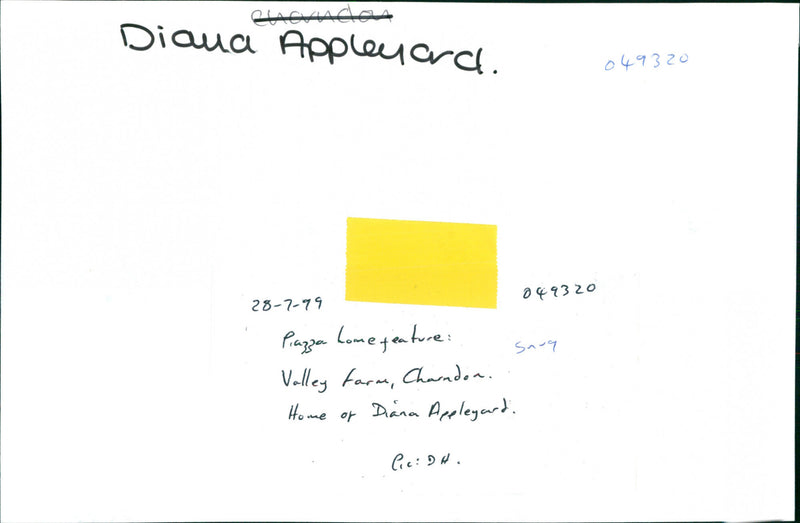 Charndon
Diana Appleyard.
049320
28-7-99
049320
Piazza home feature:
Snug
Valley Farm, Charndon.
Home of Diana Appleyard.
Pic: DH.